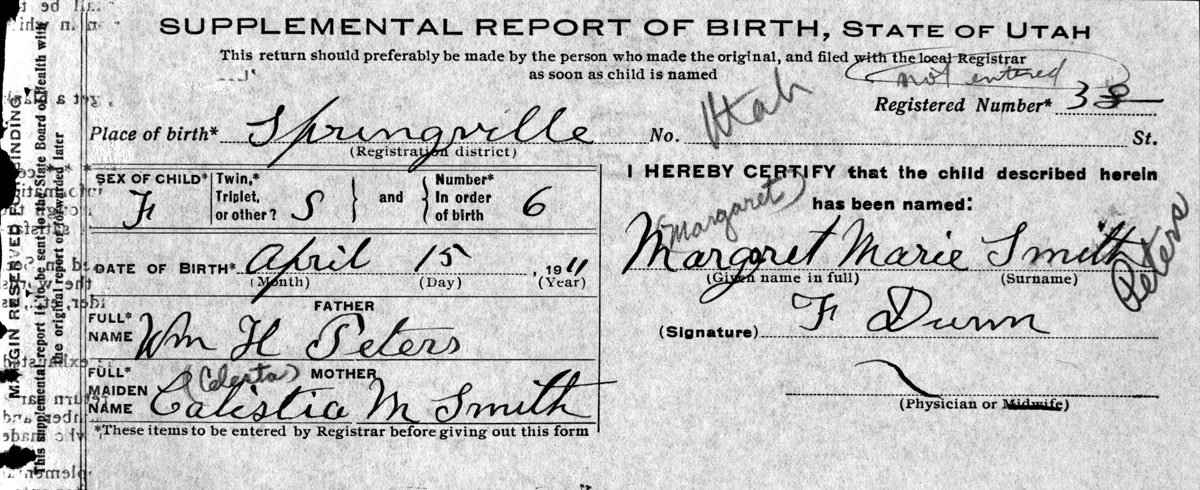 SUPPLEMENTAL REPORT OF BIRTH, STATE OF UTAH
This return should preferably be made by the person who made the original, and filed with the local Registrar
as soon as child is named
not entered
Registered Number* 38
Place of birth* Springville No. Utah St.
(Registration district)
SEX OF CHILD* F Twin,* Triplet, or other? S and Number* In order of birth 6
I HEREBY CERTIFY that the child described herein
has been named:
Margaret
Margret Marie Smith Peters
(Given name in full) (Surname)
DATE OF BIRTH* April 15, 1911
(Month) (Day) (Year)
FATHER
FULL* NAME Wm H Peters
(Signature) F Dunn
MOTHER
(Celesta)
FULL* MAIDEN NAME Calistia M Smith
(Physician or Midwife)
*These items to be entered by Registrar before giving out this form
MARGIN RESERVED FOR BINDING
This supplemental report is to be sent to the State Board of Health with
the original report or forwarded later